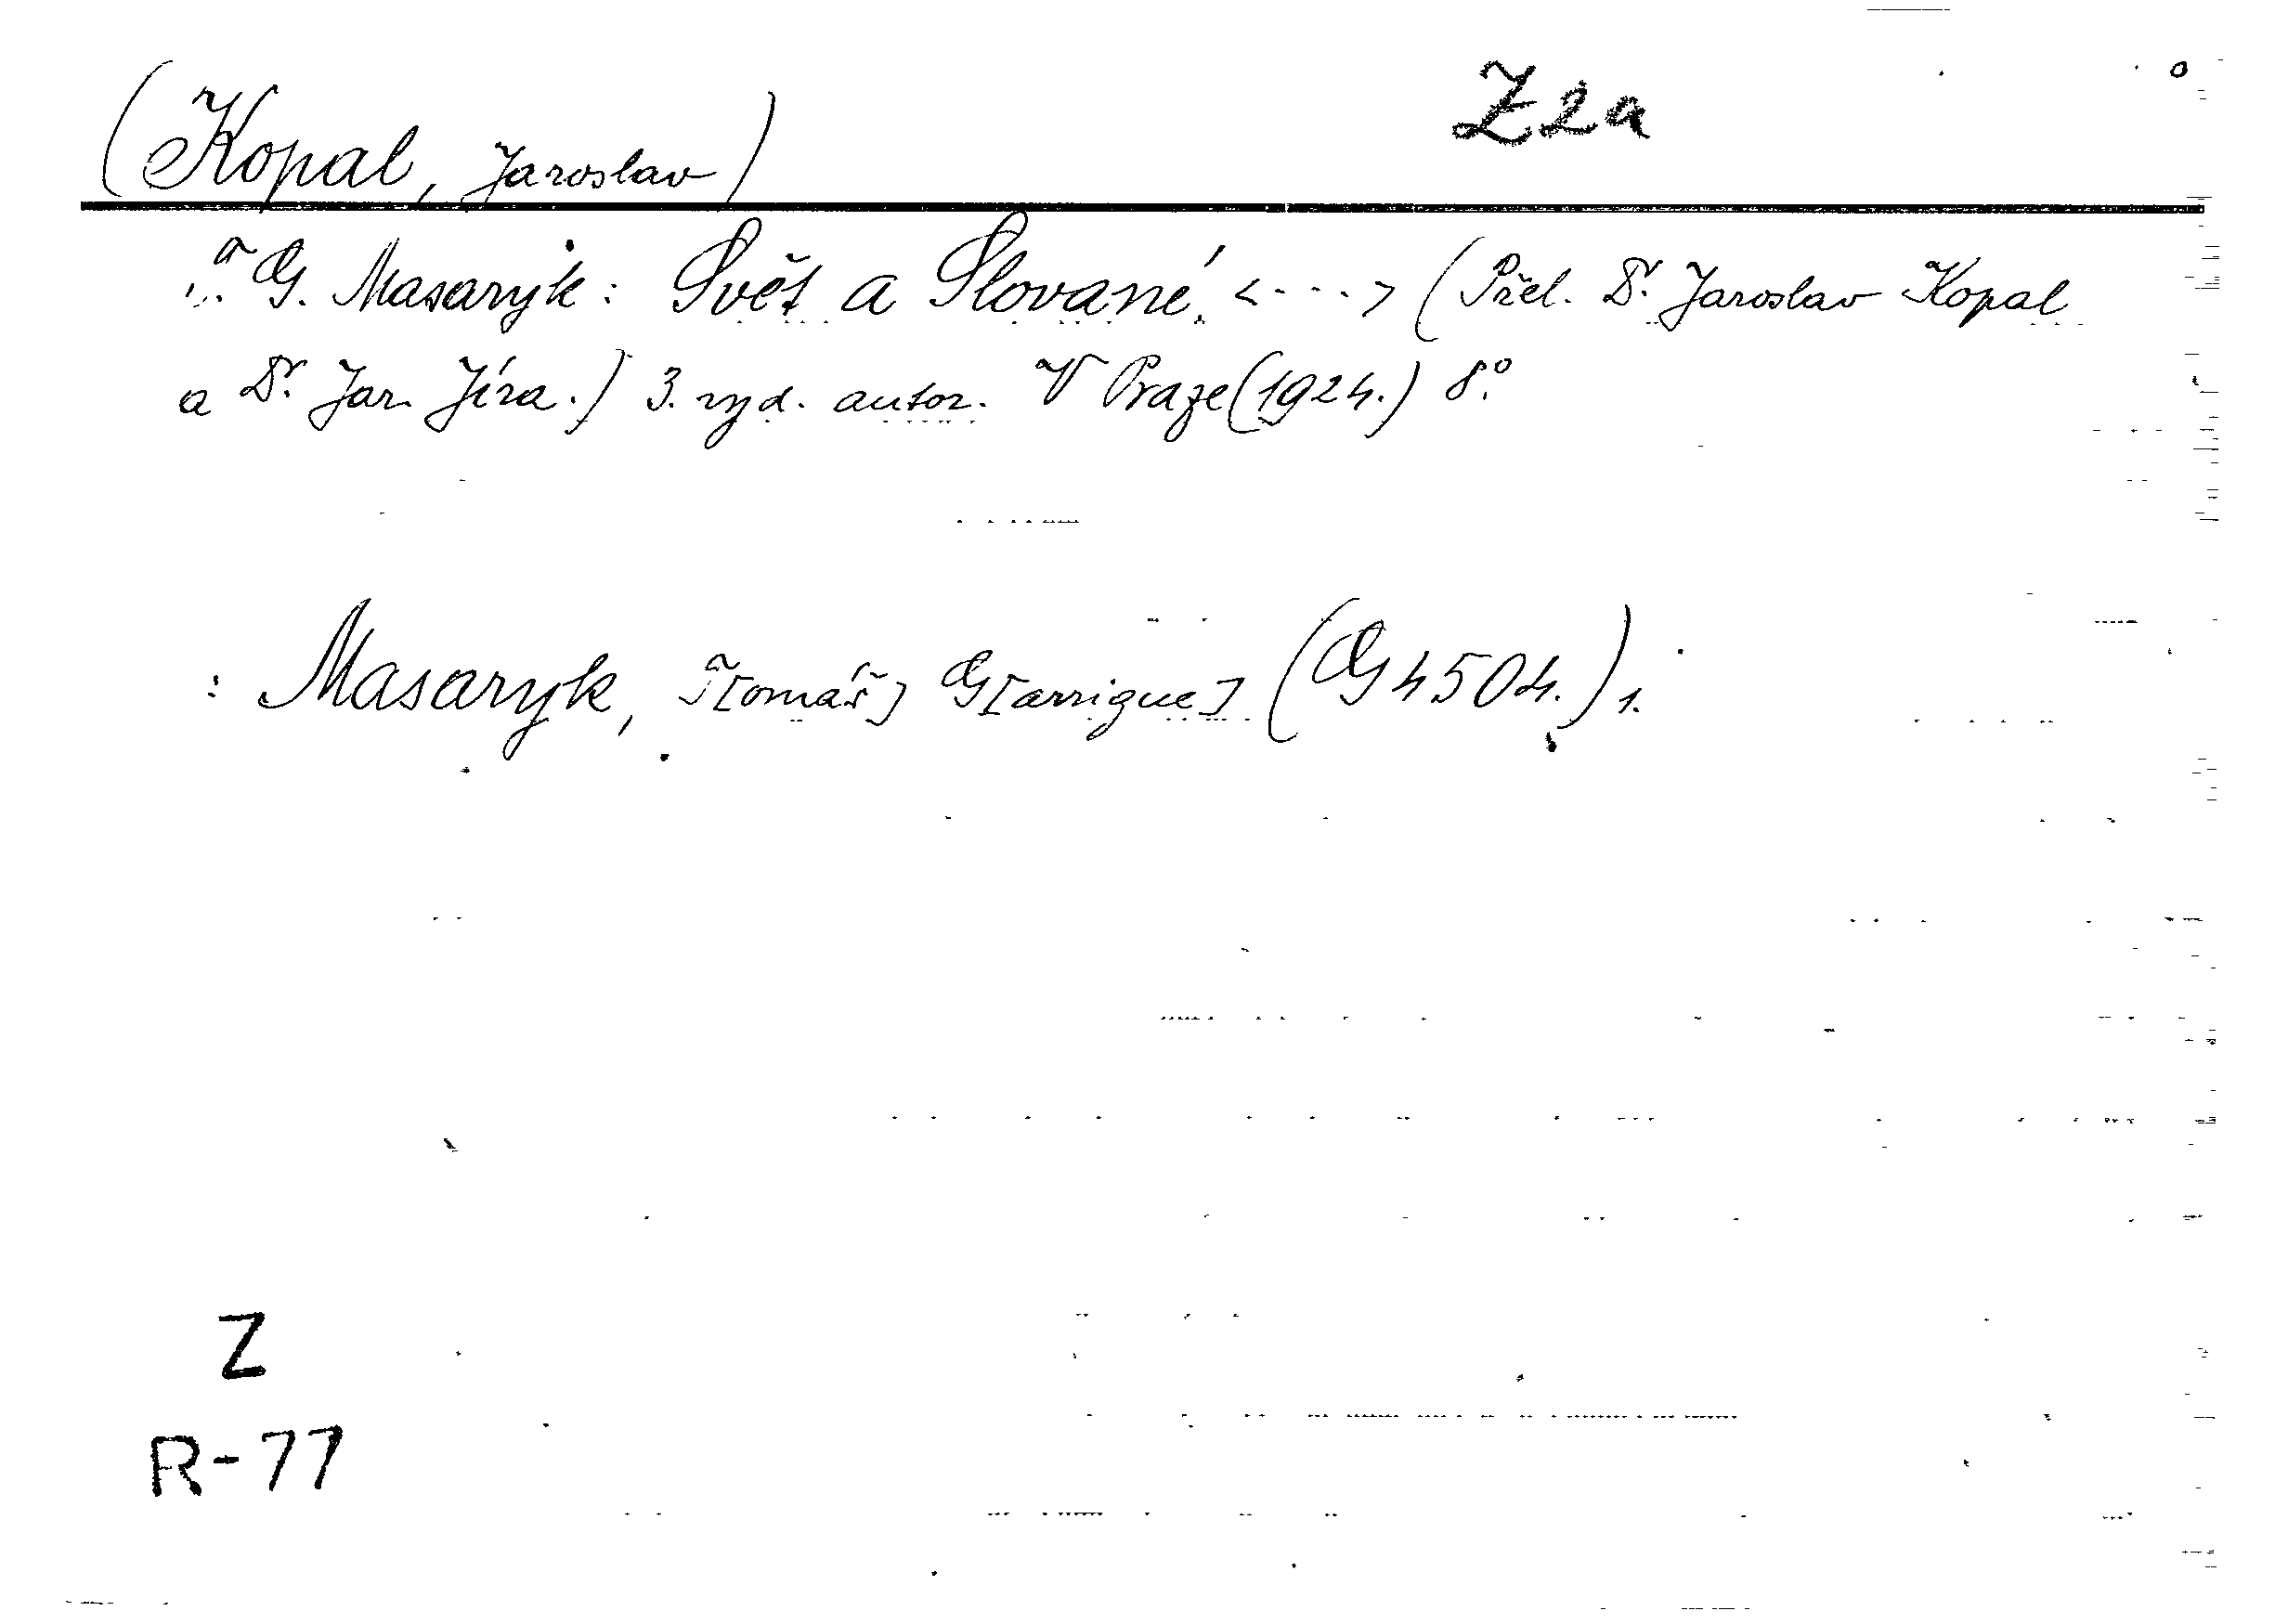 (Kopal, Jaroslav) Z2a
T. G. Masaryk: Svět a Slované. <---> (Přel. Dr. Jaroslav Kopal
a Dr. Jar. Jíra.) 3. vyd. autor. V Praze (1924.) 8.°
: Masaryk, T[omáš] G[arrigue] (G 4504.) 1.
Z
R-77